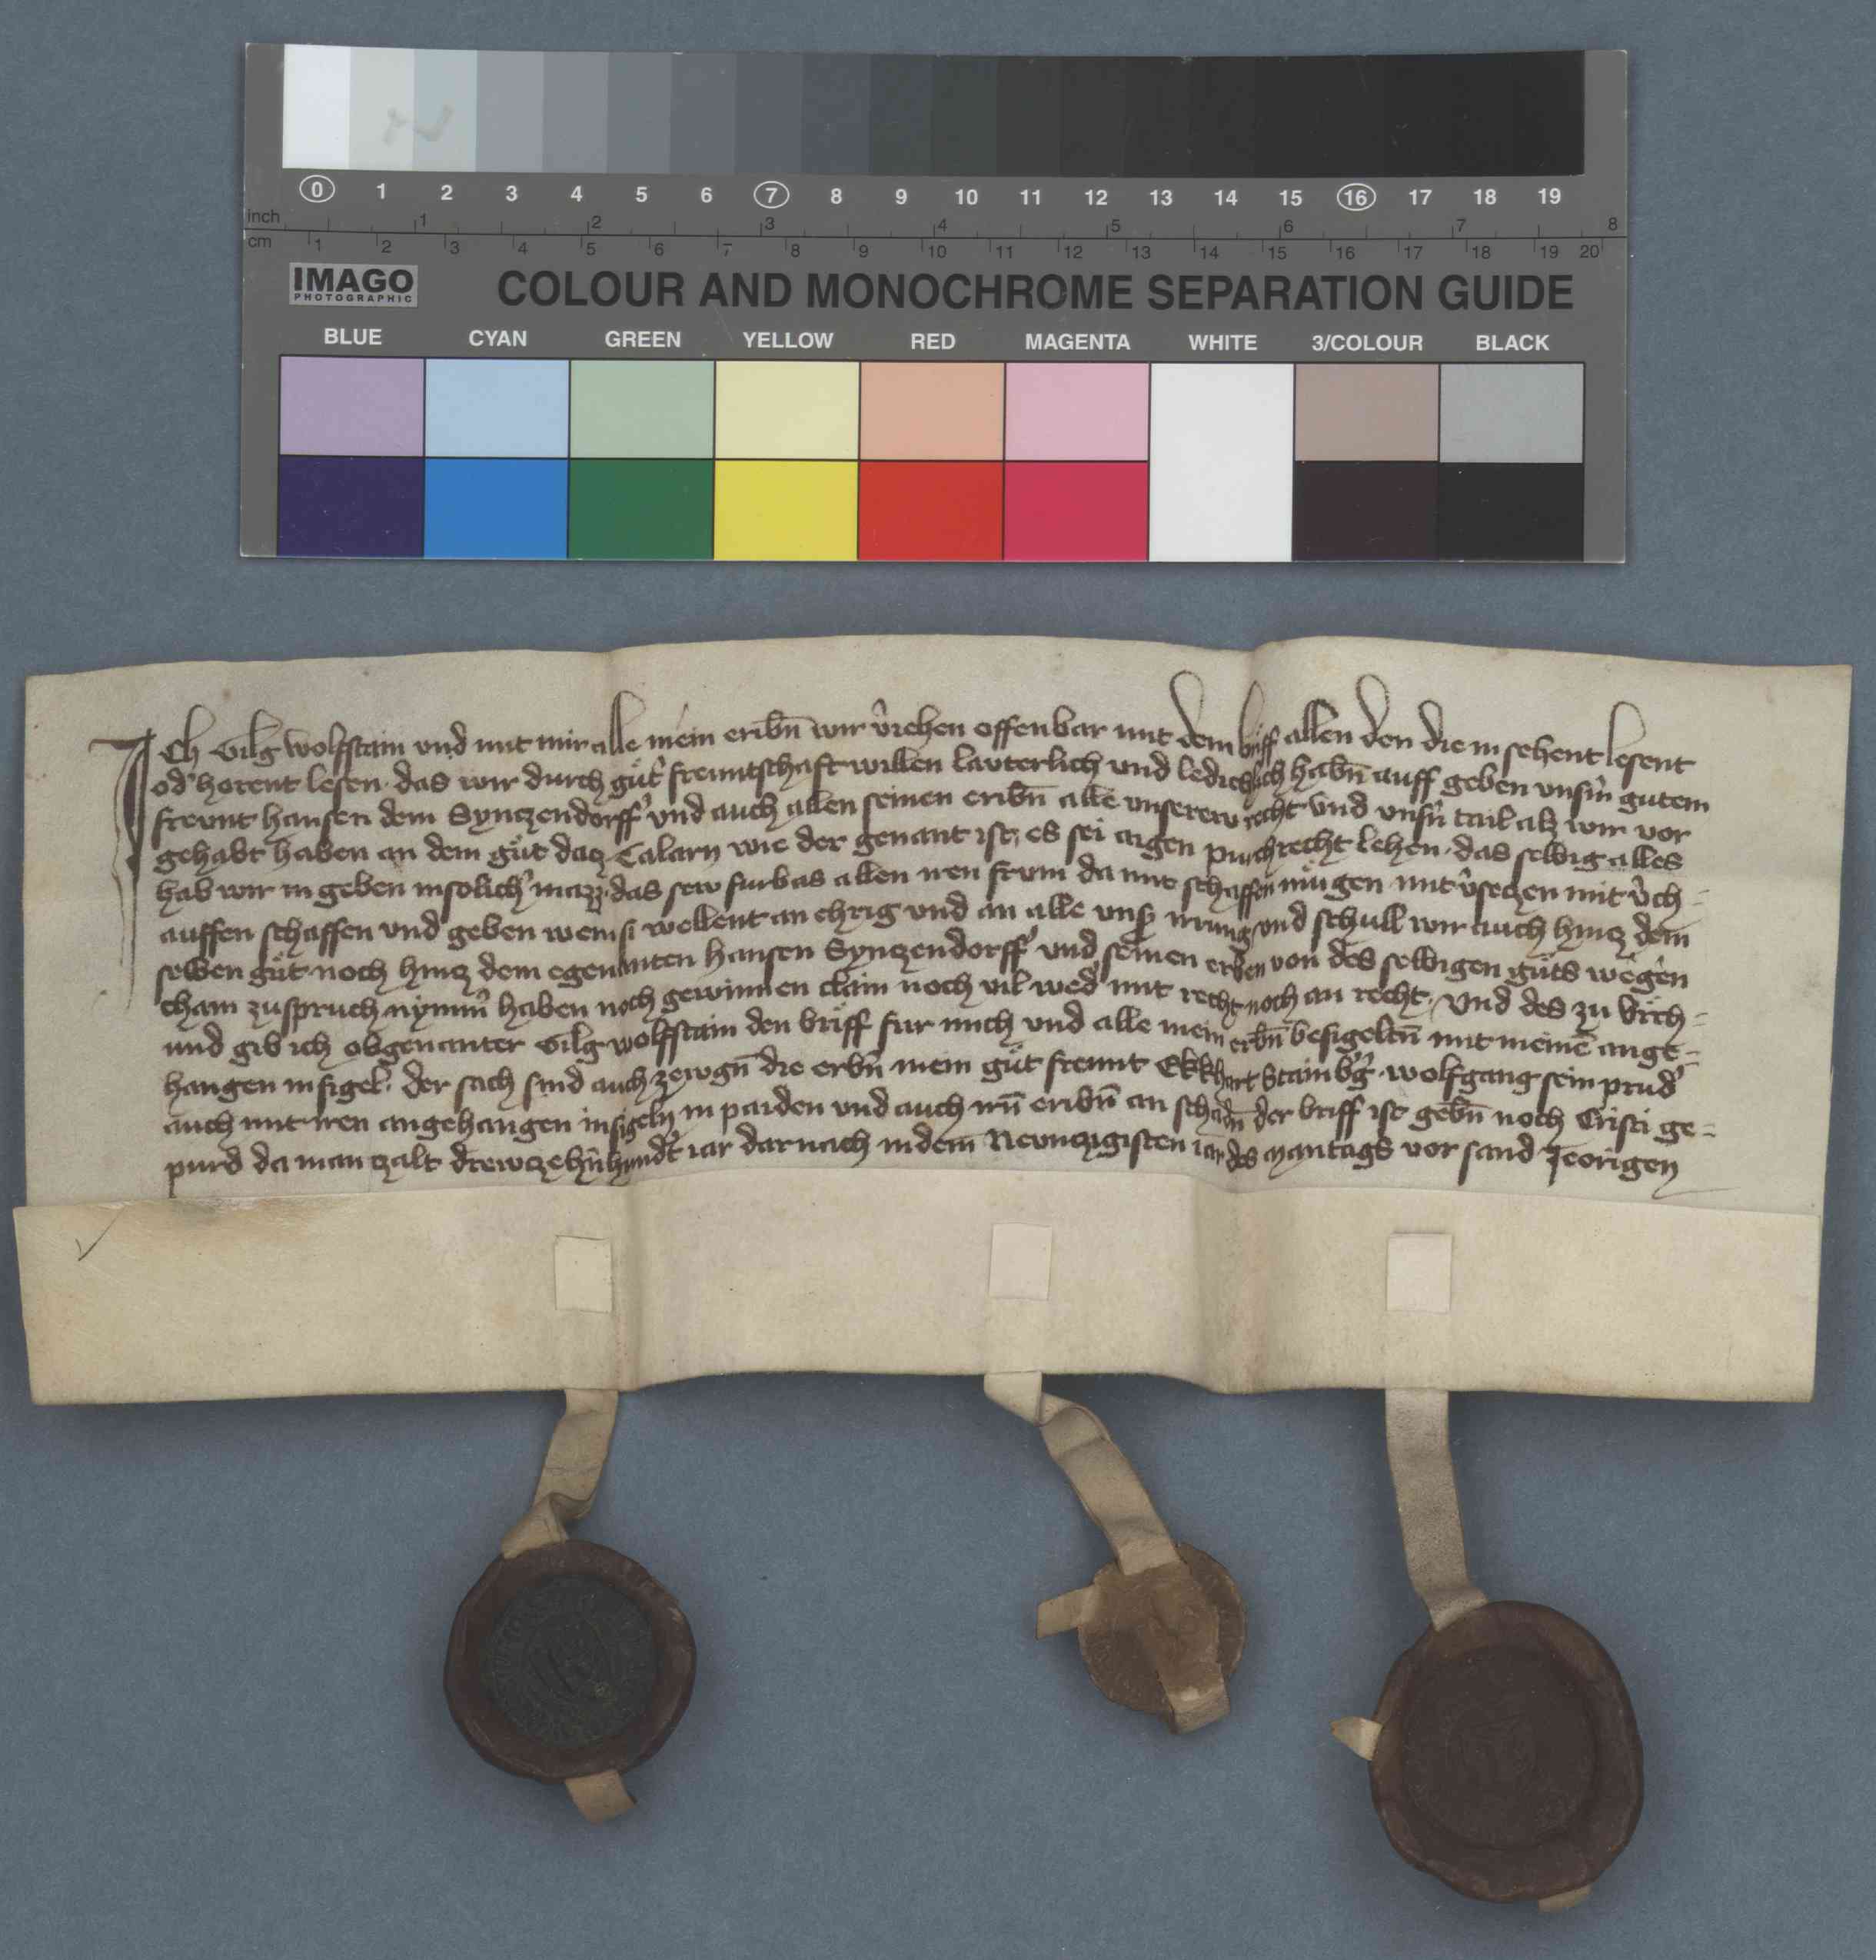 0 1 2 3 4 5 6 7 8 9 10 11 12 13 14 15 16 17 18 19
inch 1 2 3 4 5 6 7 8
cm 1 2 3 4 5 6 7 8 9 10 11 12 13 14 15 16 17 18 19 20
IMAGO
PHOTOGRAPHIC
COLOUR AND MONOCHROME SEPARATION GUIDE
BLUE CYAN GREEN YELLOW RED MAGENTA WHITE 3/COLOUR BLACK
Ich Gilg wolfstain vnd mit mir alle mein eribn̄ wir v̂iehen offenbar mit dem briff allen den die in sehent lesent
od' horent lesen das wir durch gůt' frewntschaft willen lavterlich vnd ledichlich habn̄ auff geben vnsm̄ gutem
frevnt hansen dem Synczendorff' vnd auch allen seinen eribn̄ alle vnserew recht vnd vnsn̄ tail als wir vor
gehabt haben an dem gůt dacz Talarn wie der genant ist, es sei aigen purchrecht lehen das selbig alles
hab wir in geben in solich' mazz das sew furbas allen iren frum da mit schaffen mügen mit v̂seczen mit v̂ch=
auffen schaffen vnd geben wem si wellent an chrig vnd an alle vns' irrung vnd schull wir auch hincz dem
selben gůt noch hincz dem egenanten hansen Synczendorff' vnd seinen erben von des selbigen gůts wegen
cham zuspruch nymm̄ haben noch gewinnen chlain noch vil wed' mit recht noch an recht. Vnd des zu vrch=
und gib ich obgenanter Gilg wolfstain den briff fur mich vnd alle mein erbn̄ besigeltn̄ mit meinē ange=
hangen insigel. der sach sind auch zewgn̄ die erbn̄ mein gůt frevnt Ekkhart Stainb'g' wolfgang sein prud'
auch mit iren angehangen insigeln in paiden vnd auch irn̄ eribn̄ an schadn̄ der briff ist gebn̄ noch Cristi ge=
purd da man czalt drewczehn̄hundt iar dar nach in dem Newnczigisten iar des mantags vor sand Jeorigen